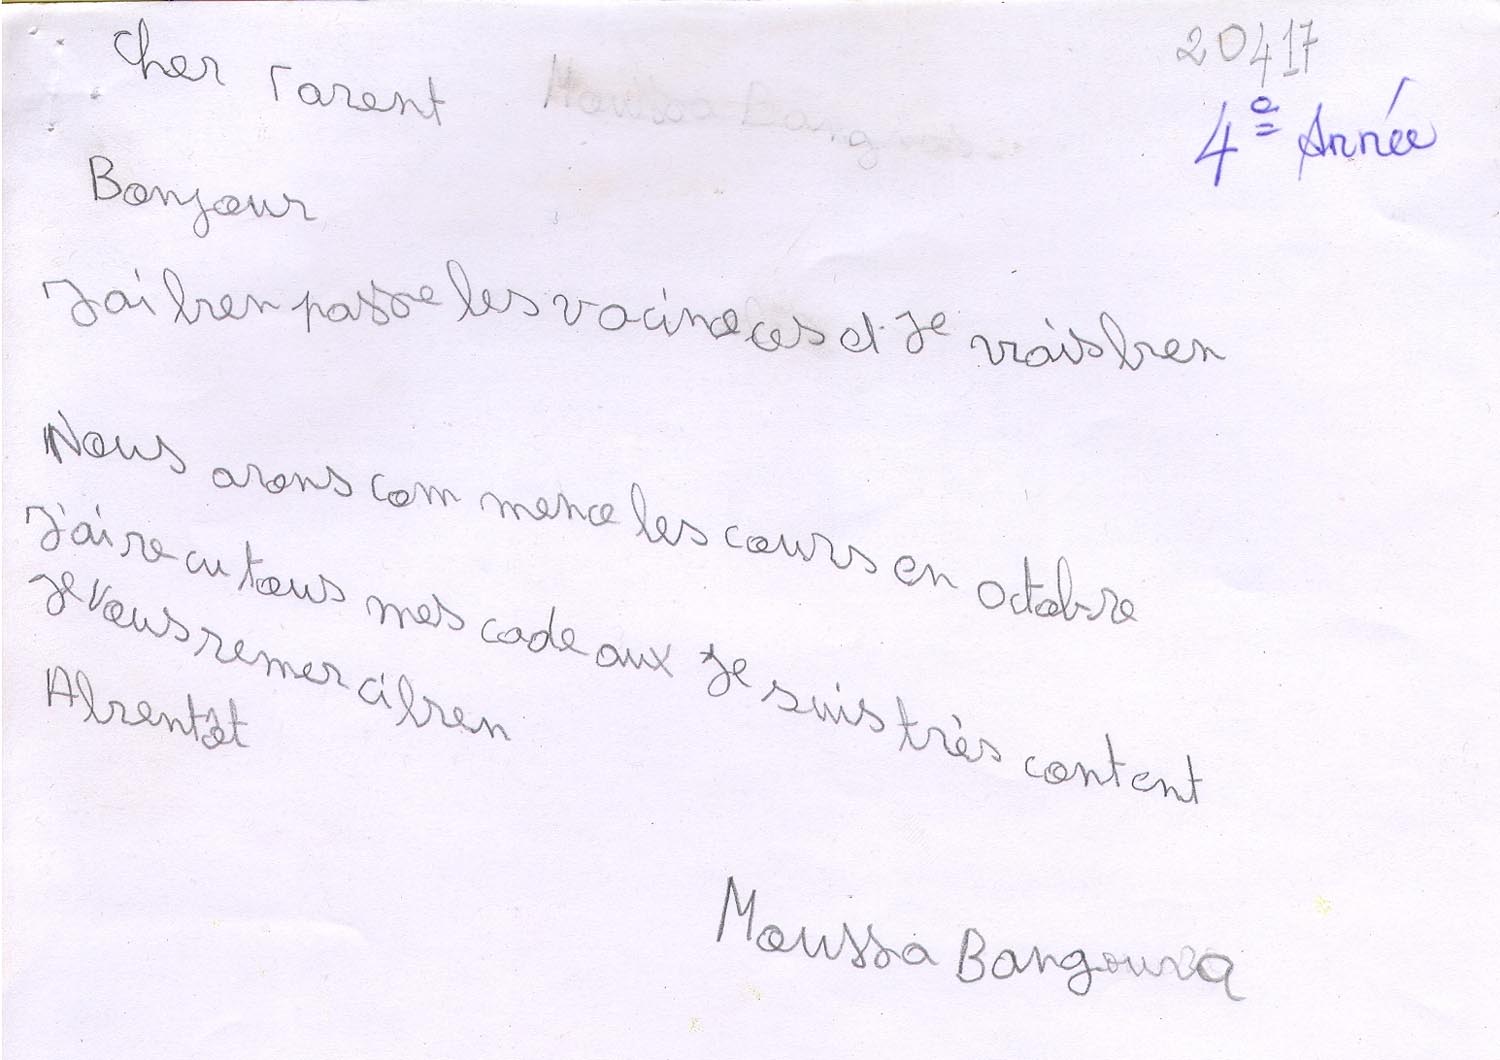 20417
4e Année
Cher Parent
Moussa Bangoura
Bonjour
J'ai bien passe les vacinces et Je vais bien
Nous avons com mence les cours en octobre
J'ai re cu tous mes cade aux Je suis très content
Je vous remer ci bien
A bientôt
Moussa Bangoura